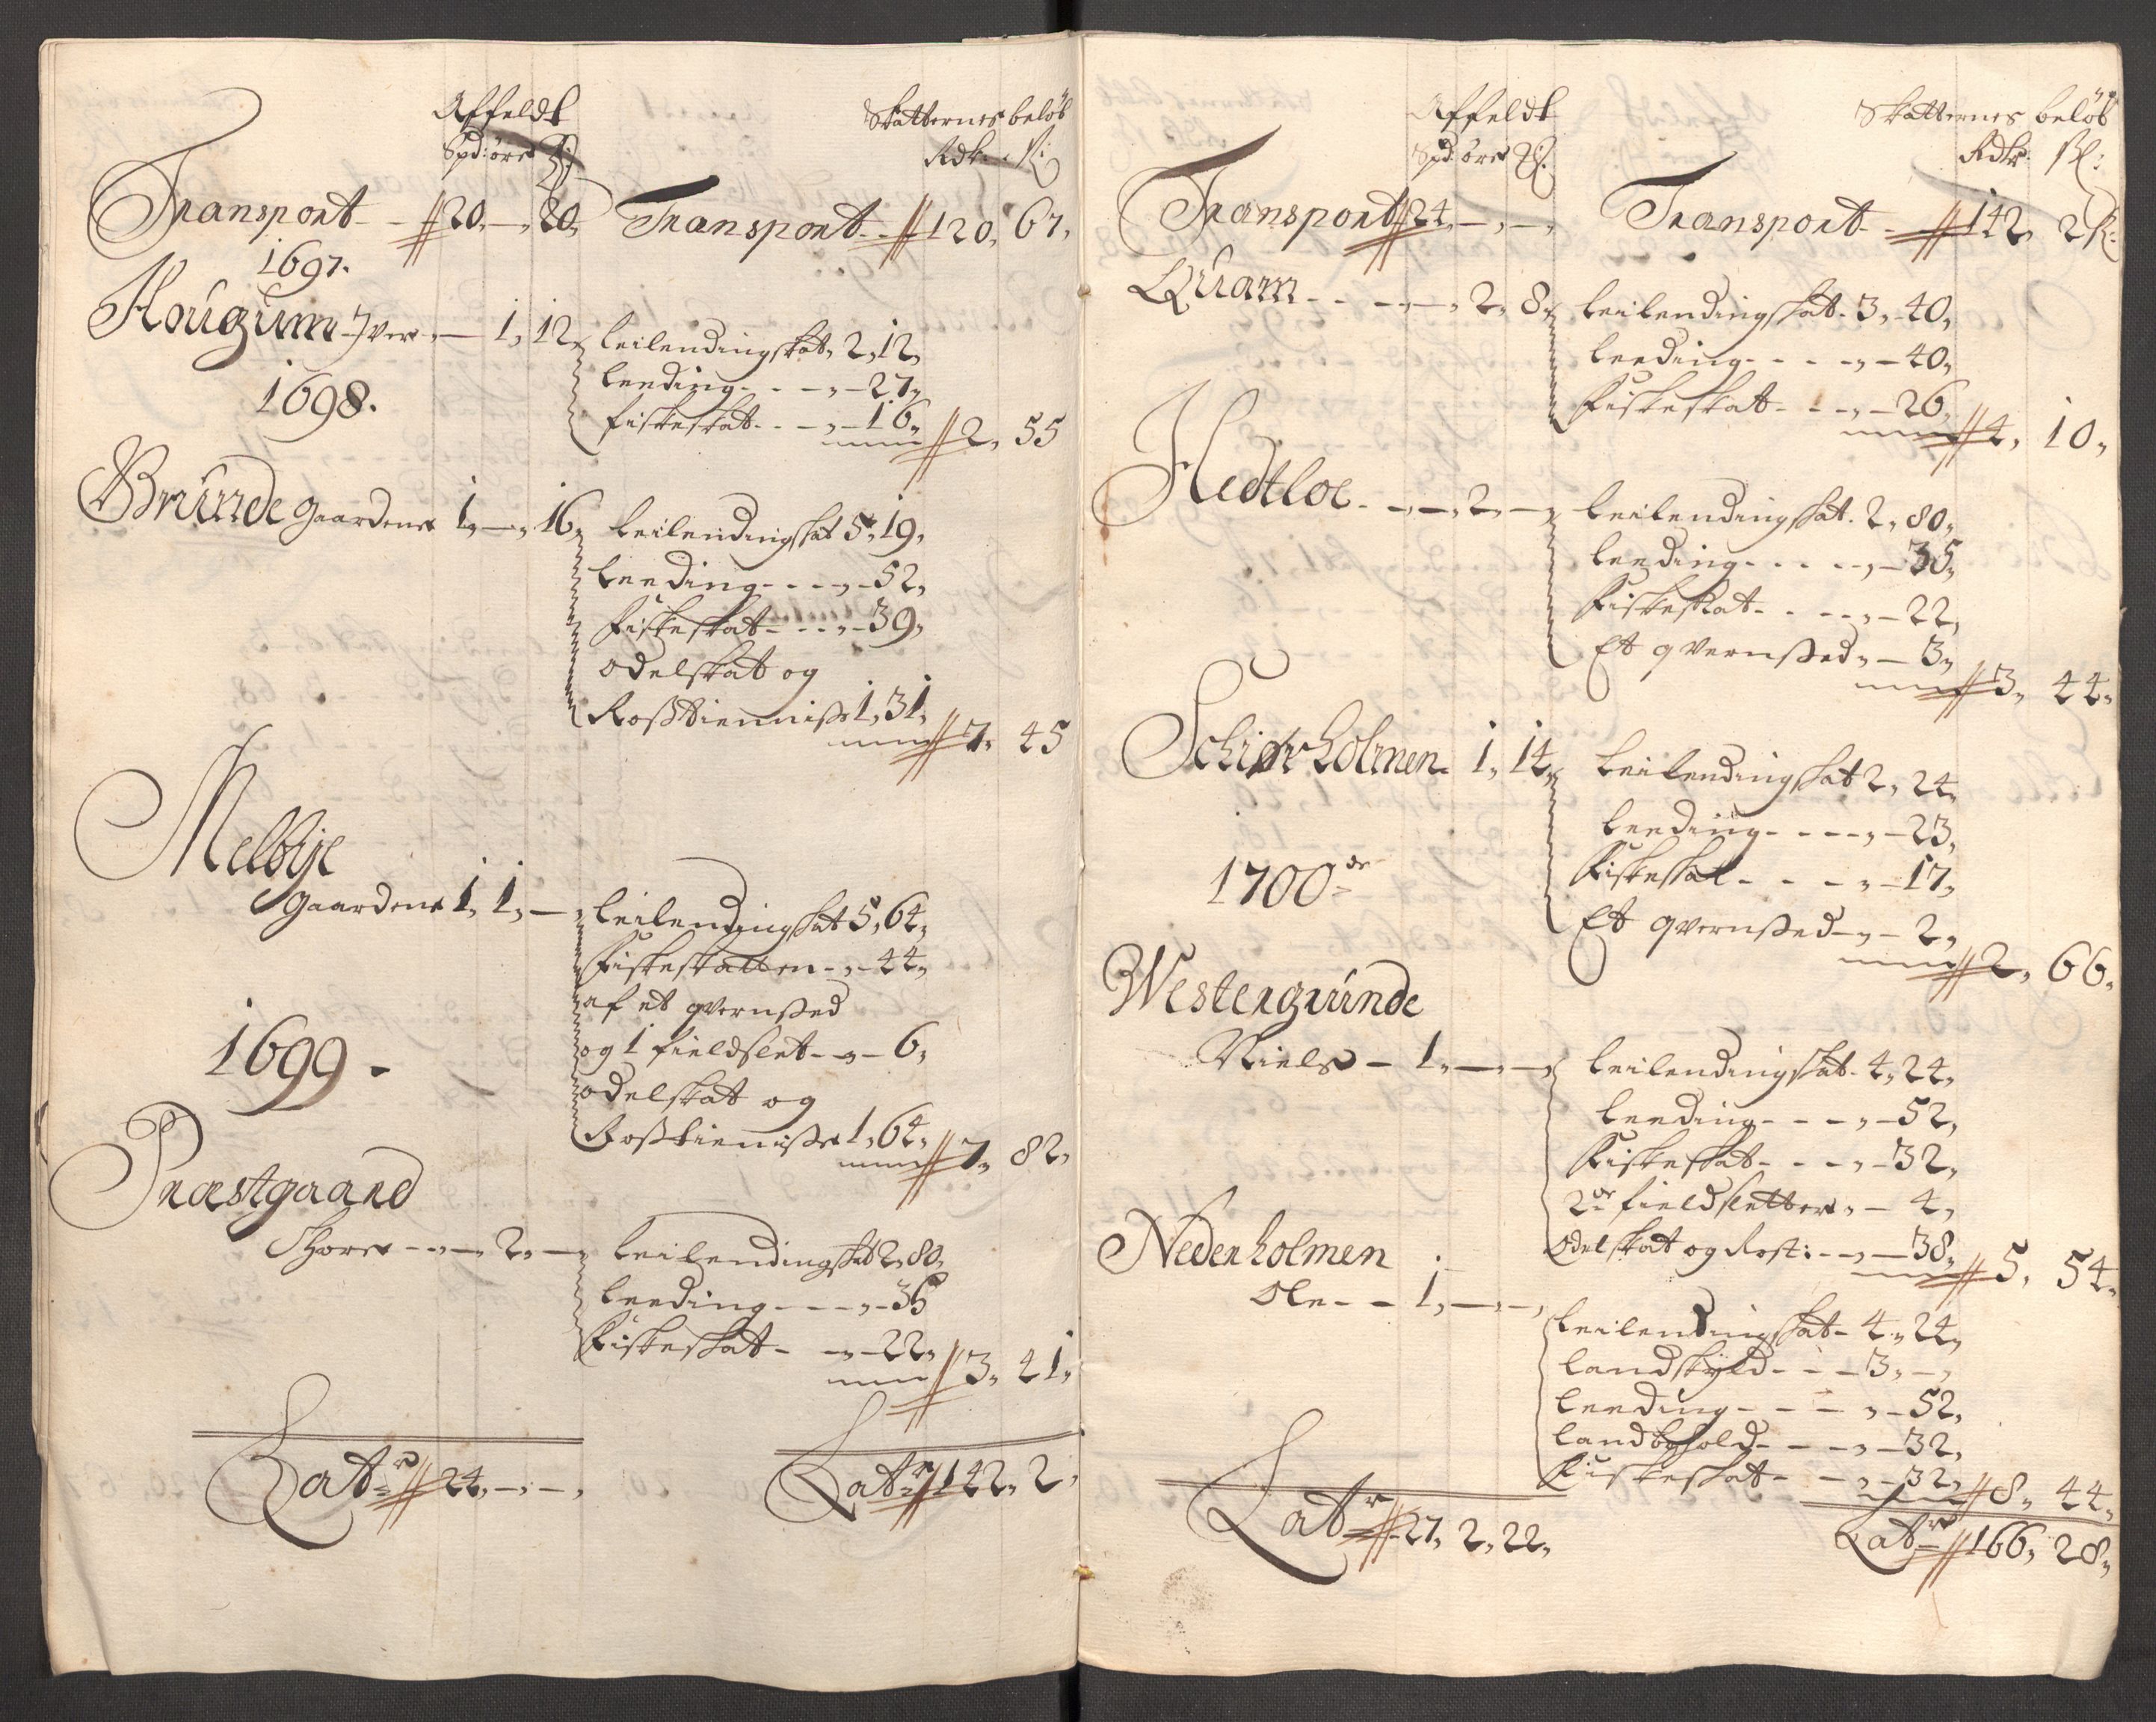 Affeldt Skatternes beløb
Spd: øre Rdr: ſk:
Transport - - 20, - , 20, Transport - - 120, 67,
1697.
Hougum Iver - 1, 12, leilendingskat, 2, 12,
leeding - - - , - 27,
1698.
fiskeskat - - - , - 16, 2, 55
Bruunde gaardene 1, - , 16, leilendingskat 5, 19,
leeding - - - , - 52,
fiskeskat - - - , - 39,
odelskat og
Roßtienniste 1, 31, 7, 45
Melbÿe
gaardene 1, 1, - , leilendingskat 5, 64,
fiskeskatten - , - 44,
af et qvernsted
1699 -
og 1 fieldslet - , - 6,
odelskat og
Roßtieniste 1, 64, 7, 82,
Præstgaard
Thore - - , - 2, - , leilendingskat 2, 80,
leeding - - - , - 35
fiskeskat - - , - 22, 3, 41,
Lat: 24, - , - , Lat: 142, 2,
Affeldt Skatternes beløb
Spd: øre Rdr: ſk:
Transport 24, - , - , Transport - 142, 2 ſk:
Quam - - - , - , 2, 8, leilendingskat - 3, - 40,
leeding - - - - , - 40,
fiskeskat - - - , - 26, 4, 10,
Hedtloe - - , - , 2, - , leilendingskat - 2, 80,
leeding - - - - - , - 35,
fiskeskat - - - - , - 22,
Et qvernsted, - 3, 3, 44,
Schiørholmen - 1, 14, leilendingskat 2, 24,
leeding - - - - , - 23,
1700de
fiskeskat - - - - , - 17,
Et qvernsted - , - 2, 2, 66,
Westergruinde
Niels - 1, - , - , leilendingskat - 4, 24,
leeding - - - , - 52,
fiskeskat - - - , - 32,
2de fieldsletter, - 4,
odelskat og Rost: - , - 38, 5, 54,
Nederholmen
Ole - - 1, - , - ,
leilendingskat - 4, 24,
landskÿld - - - 3, - ,
leeding - - - , - 52,
landbohold - - - , - 32,
fiskeskat - - , - 32, 8, 44,
Lat: 27, 2, 22, Lat: 166, 28,